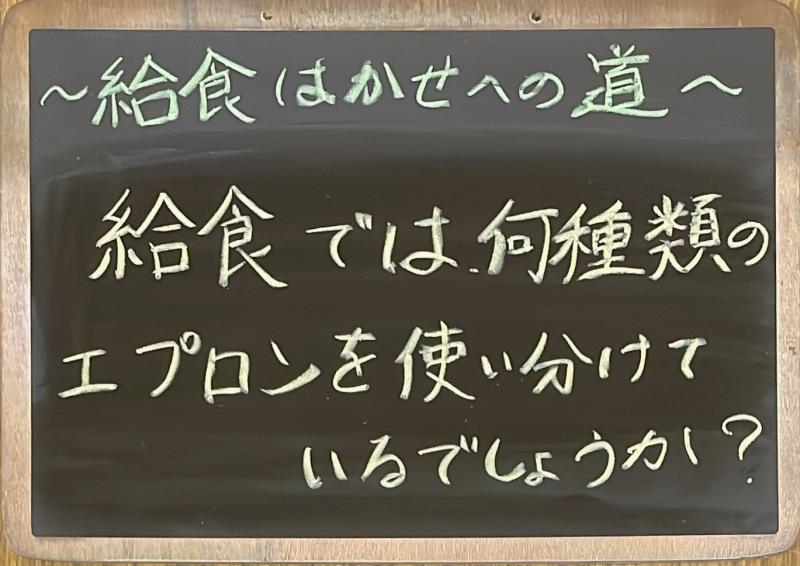 ～給食はかせへの道～
給食では、何種類の
エプロンを使い分けて
いるでしょうか？